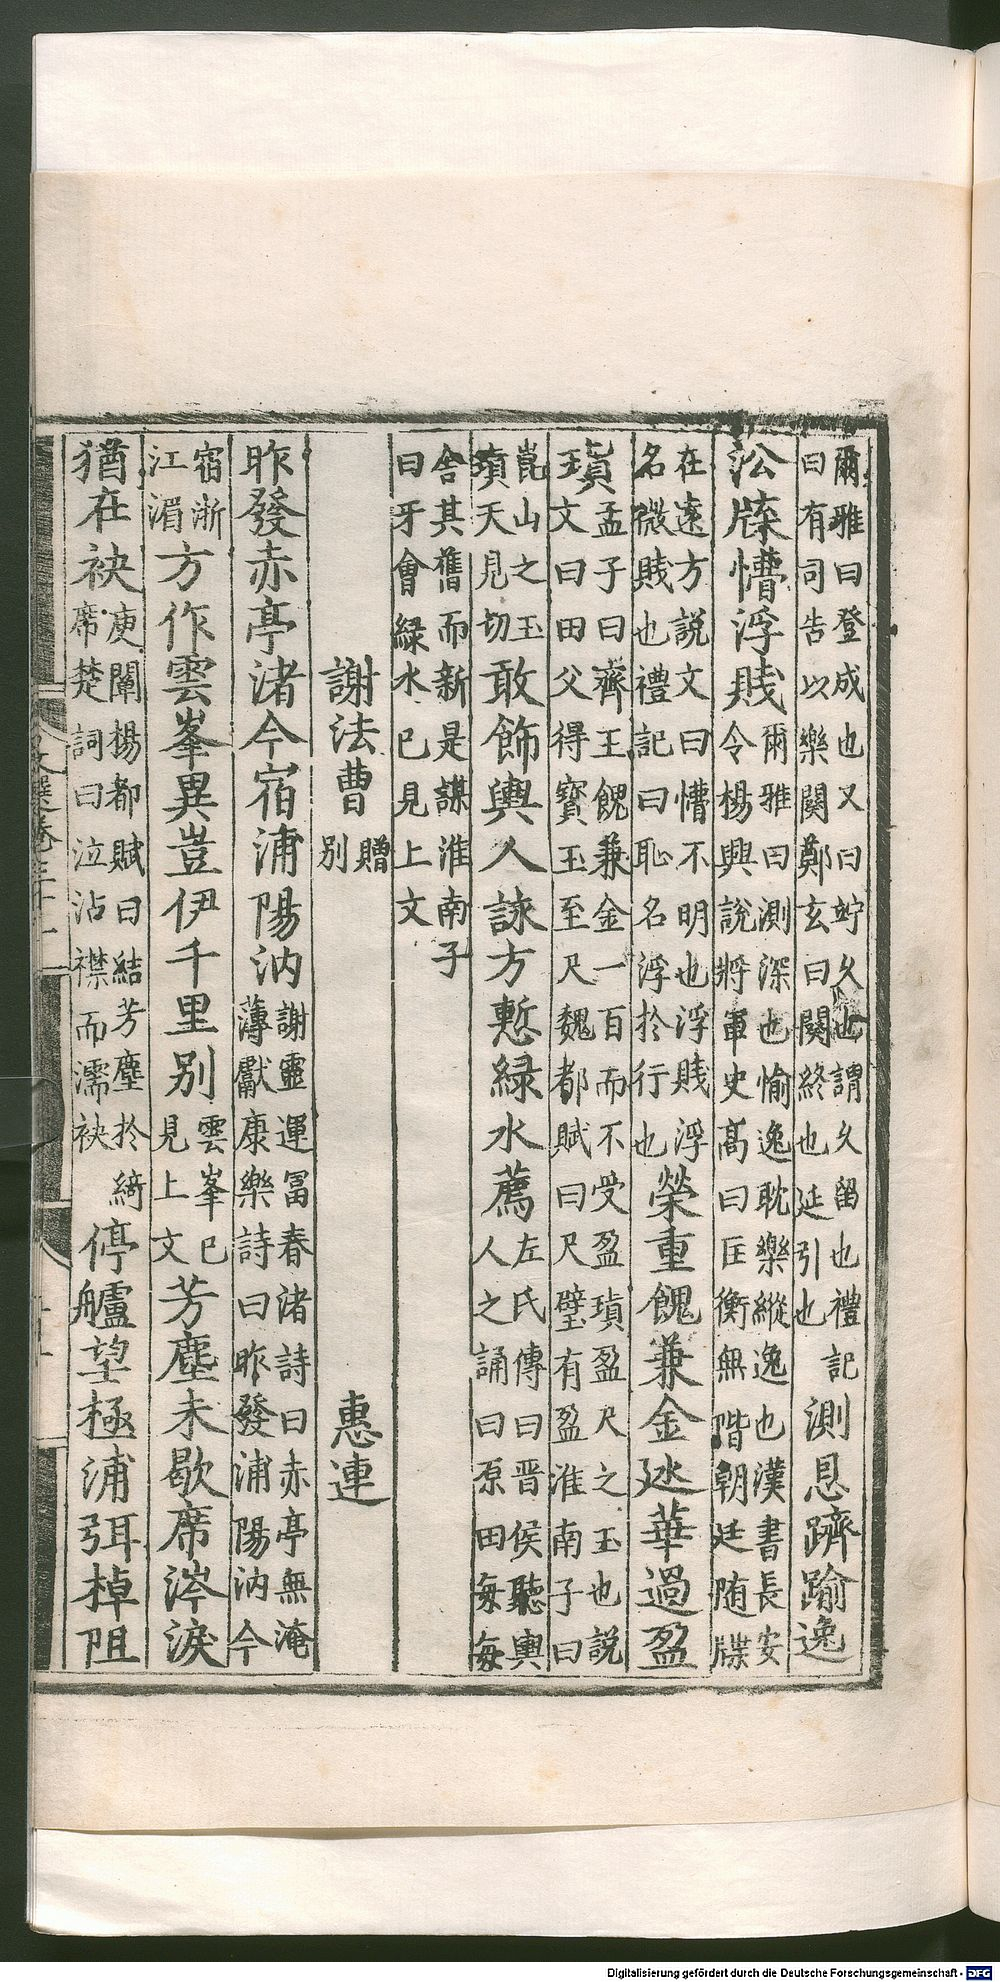 爾雅曰登成也又曰竚久也謂久留也禮記
曰有司告以樂闋鄭玄曰闋終也延引也
測恩躋踰逸
沿牒懵浮賤
爾雅曰測深也愉逸耽樂縱逸也漢書長安
令楊興說將軍史高曰匡衡無階朝廷随牒
在遠方說文曰懵不明也浮賤浮
名微賤也禮記曰恥名浮於行也
榮重餽兼金廵華過盈
瑱
孟子曰齊王餽兼金一百而不受盈瑱盈尺之玉也說
文曰田父得寳玉至尺魏都賦曰尺璧有盈淮南子曰
崑山之玉
瑱天見切
敢飾輿人詠方慙緑水薦
左氏傳曰晉侯聽輿
人之誦曰原田每每
舎其舊而新是謀淮南子
曰牙會緑水巳見上文
謝法曹
贈
別
惠連
昨發赤亭渚今宿浦陽汭
謝靈運富春渚詩曰赤亭無淹
薄獻康樂詩曰昨發浦陽汭今
宿浙
江湄
方作雲峯異豈伊千里別
雲峯巳
見上文
芳塵未歇席涔淚
猶在袂
庾闡楊都賦曰結芳塵於綺
席楚詞曰泣沾襟而濡袂
停艫望極浦弭棹阻
文選卷三十一
Digitalisierung gefördert durch die Deutsche Forschungsgemeinschaft - DFG